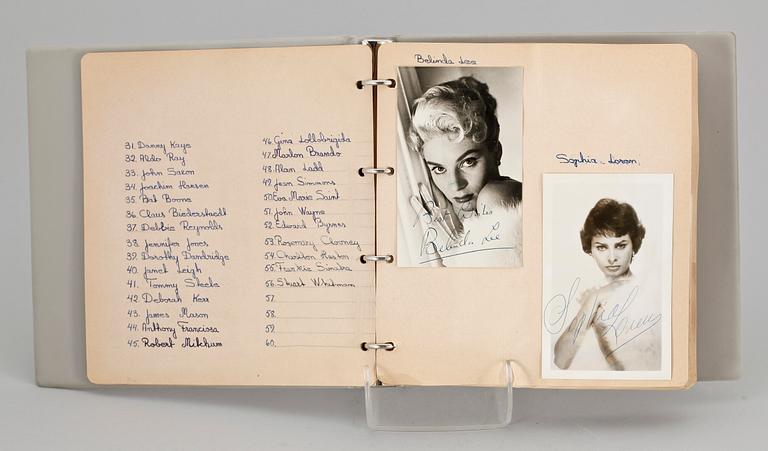 31. Danny Kaye
32. Aldo Ray
33. John Saxon
34. Joachim Hansen
35. Pat Boone
36. Claus Biederstaedt
37. Debbie Reynolds
38. Jennifer Jones
39. Dorothy Dandridge
40. Janet Leigh
41. Tommy Steele
42. Deborah Kerr
43. James Mason
44. Anthony Franciosa
45. Robert Mitchum
46. Gina Lollobrigida
47. Marlon Brando
48. Alan Ladd
49. Jean Simmons
50. Eva Marie Saint
51. John Wayne
52. Edward Byrnes
53. Rosemary Clooney
54. Charlton Heston
55. Frankie Sinatra
56. Stuart Whitman
57.
58.
59.
60.
Belinda Lee
Best Wishes
Belinda Lee
Sophia Loren.
Sophia Loren